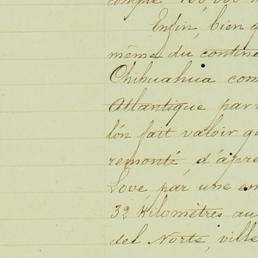 compte 100,000 h
Enfin, bien q
même du contine
Chihuahua com
Atlantique par
l'ón fait valoir qu
remonté d'apre
Love par une em
32 kilomètres au
del Norte, ville